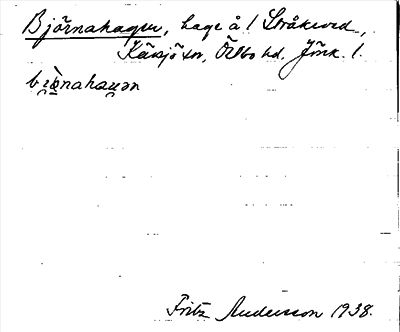 Björnahagen, hage å 1 Stråkeved,
Kävsjö sn, Östbo hd. Jönk. l.
Fritz Andersson 1938.